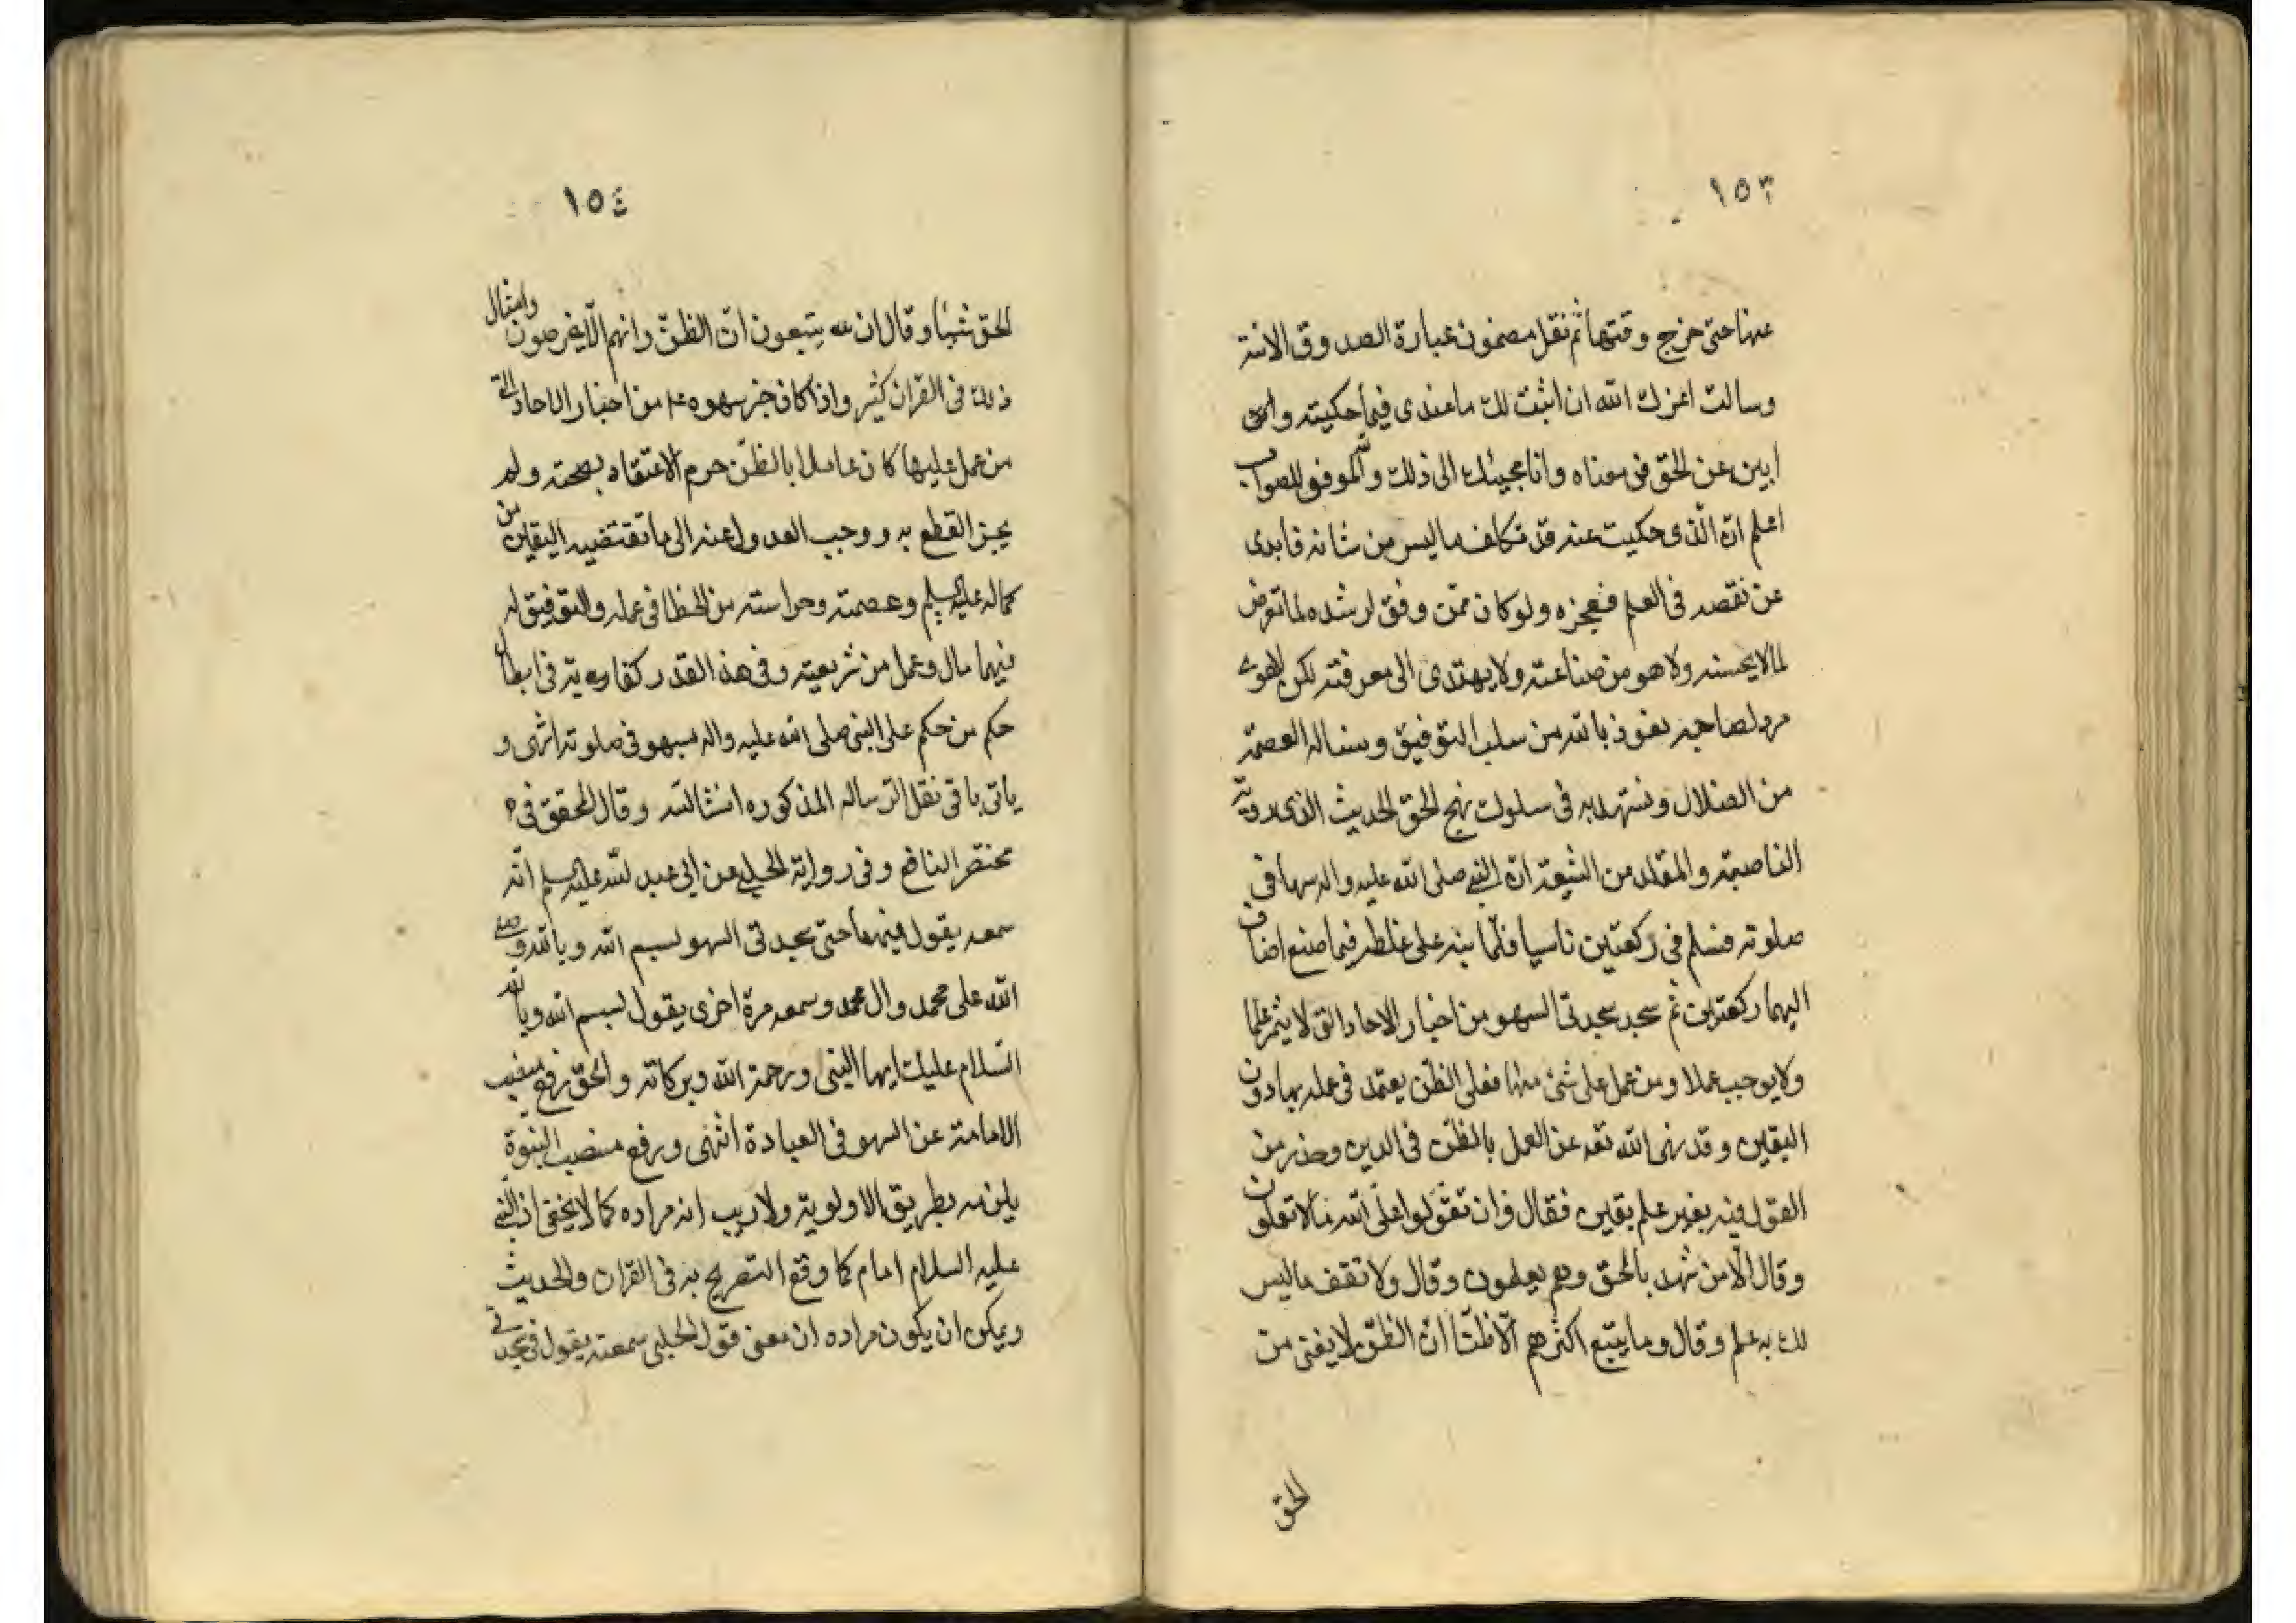 ١٥٣
عنها حتى خرج وقتها ثم نقل مضمون عبارة الصدوق الآتية
وسالت اعزك الله ان اثبت لك ما عندى فيما حكيته وان
ابين عن الحق فى معناه وانا مجيبك الى ذلك والله الموفق للصواب
اعلم ان الذى حكيت عنه قد تكلف ما ليس من شانه فابدى
عن نقصه فى العلم وعجزه ولو كان ممن وفق لرشده لما تعرض
لما لا يحسنه ولا هو من صناعته ولا يهتدى الى معرفته لكن الهوى
مرد لصاحبه نعوذ بالله من سلب التوفيق ونساله العصمة
من الضلال ونستهديه فى سلوك نهج الحق الحديث الذى روته
الناصبة والمقلدة من الشيعة ان النبى صلى الله عليه واله سها فى
صلوته فسلم فى ركعتين ناسيا فلما نبه على غلطه فيما صنع اضاف
اليهما ركعتين ثم سجد سجدتى السهو من اخبار الاحاد التى لا يثمر علما
ولا يوجب عملا ومن عمل على شئ منها فعلى الظن يعتمد فى عمله بها دون
اليقين وقد نهى الله تعه عن العمل بالظن فى الدين وحذر من
القول فيه بغير علم يقين فقال وان تقولوا على الله ما لا تعلمون
وقال الا من شهد بالحق وهم يعلمون وقال ولا تقف ما ليس
لك به علم وقال وما يتبع اكثرهم الا ظنا ان الظن لا يغنى من
الحق
١٥٤
الحق شيئا وقال ان يتبعون الا الظن وانهم الا يخرصون وامثال
ذلك فى القران كثير واذا كان خبر سهوه ع من اخبار الاحاد التى
من عمل عليها كان عاملا بالظن حرم الاعتقاد بصحته ولم
يجز القطع به ووجب العدول عنه الى ما تقتضيه اليقين من
كماله عليه السلم وعصمته وحراسته من الخطا فى عمله والتوفيق له
فيما قال وعمل من شريعته وفى هذا القدر كفاية فى ابطال
حكم من حكم على النبى صلى الله عليه واله بسهو فى صلوته انتهى و
ياتى باقى نقل الرسالة المذكوره انشاالله وقال المحقق فى
مختصر النافع وفى رواية الحلبى عن ابى عبد الله عليه السلم انه
سمعه يقول فيهما حتى سجدتى السهو بسم الله وبالله وصلى
الله على محمد وال محمد وسمعه مرة اخرى يقول بسم الله وبالله
السلام عليك ايها النبى ورحمة الله وبركاته والحق رفع منصب
الامامة عن السهو فى العبادة انتهى ورفع منصب النبوة
يلزمه بطريق الاولوية ولا ريب انه مراده كما لا يخفى اذ النبى
عليه السلام امام كما وقع التصريح به فى القران والحديث
ويمكن ان يكون مراده ان معنى قول الحلبى سمعته يقول فى سجدتى